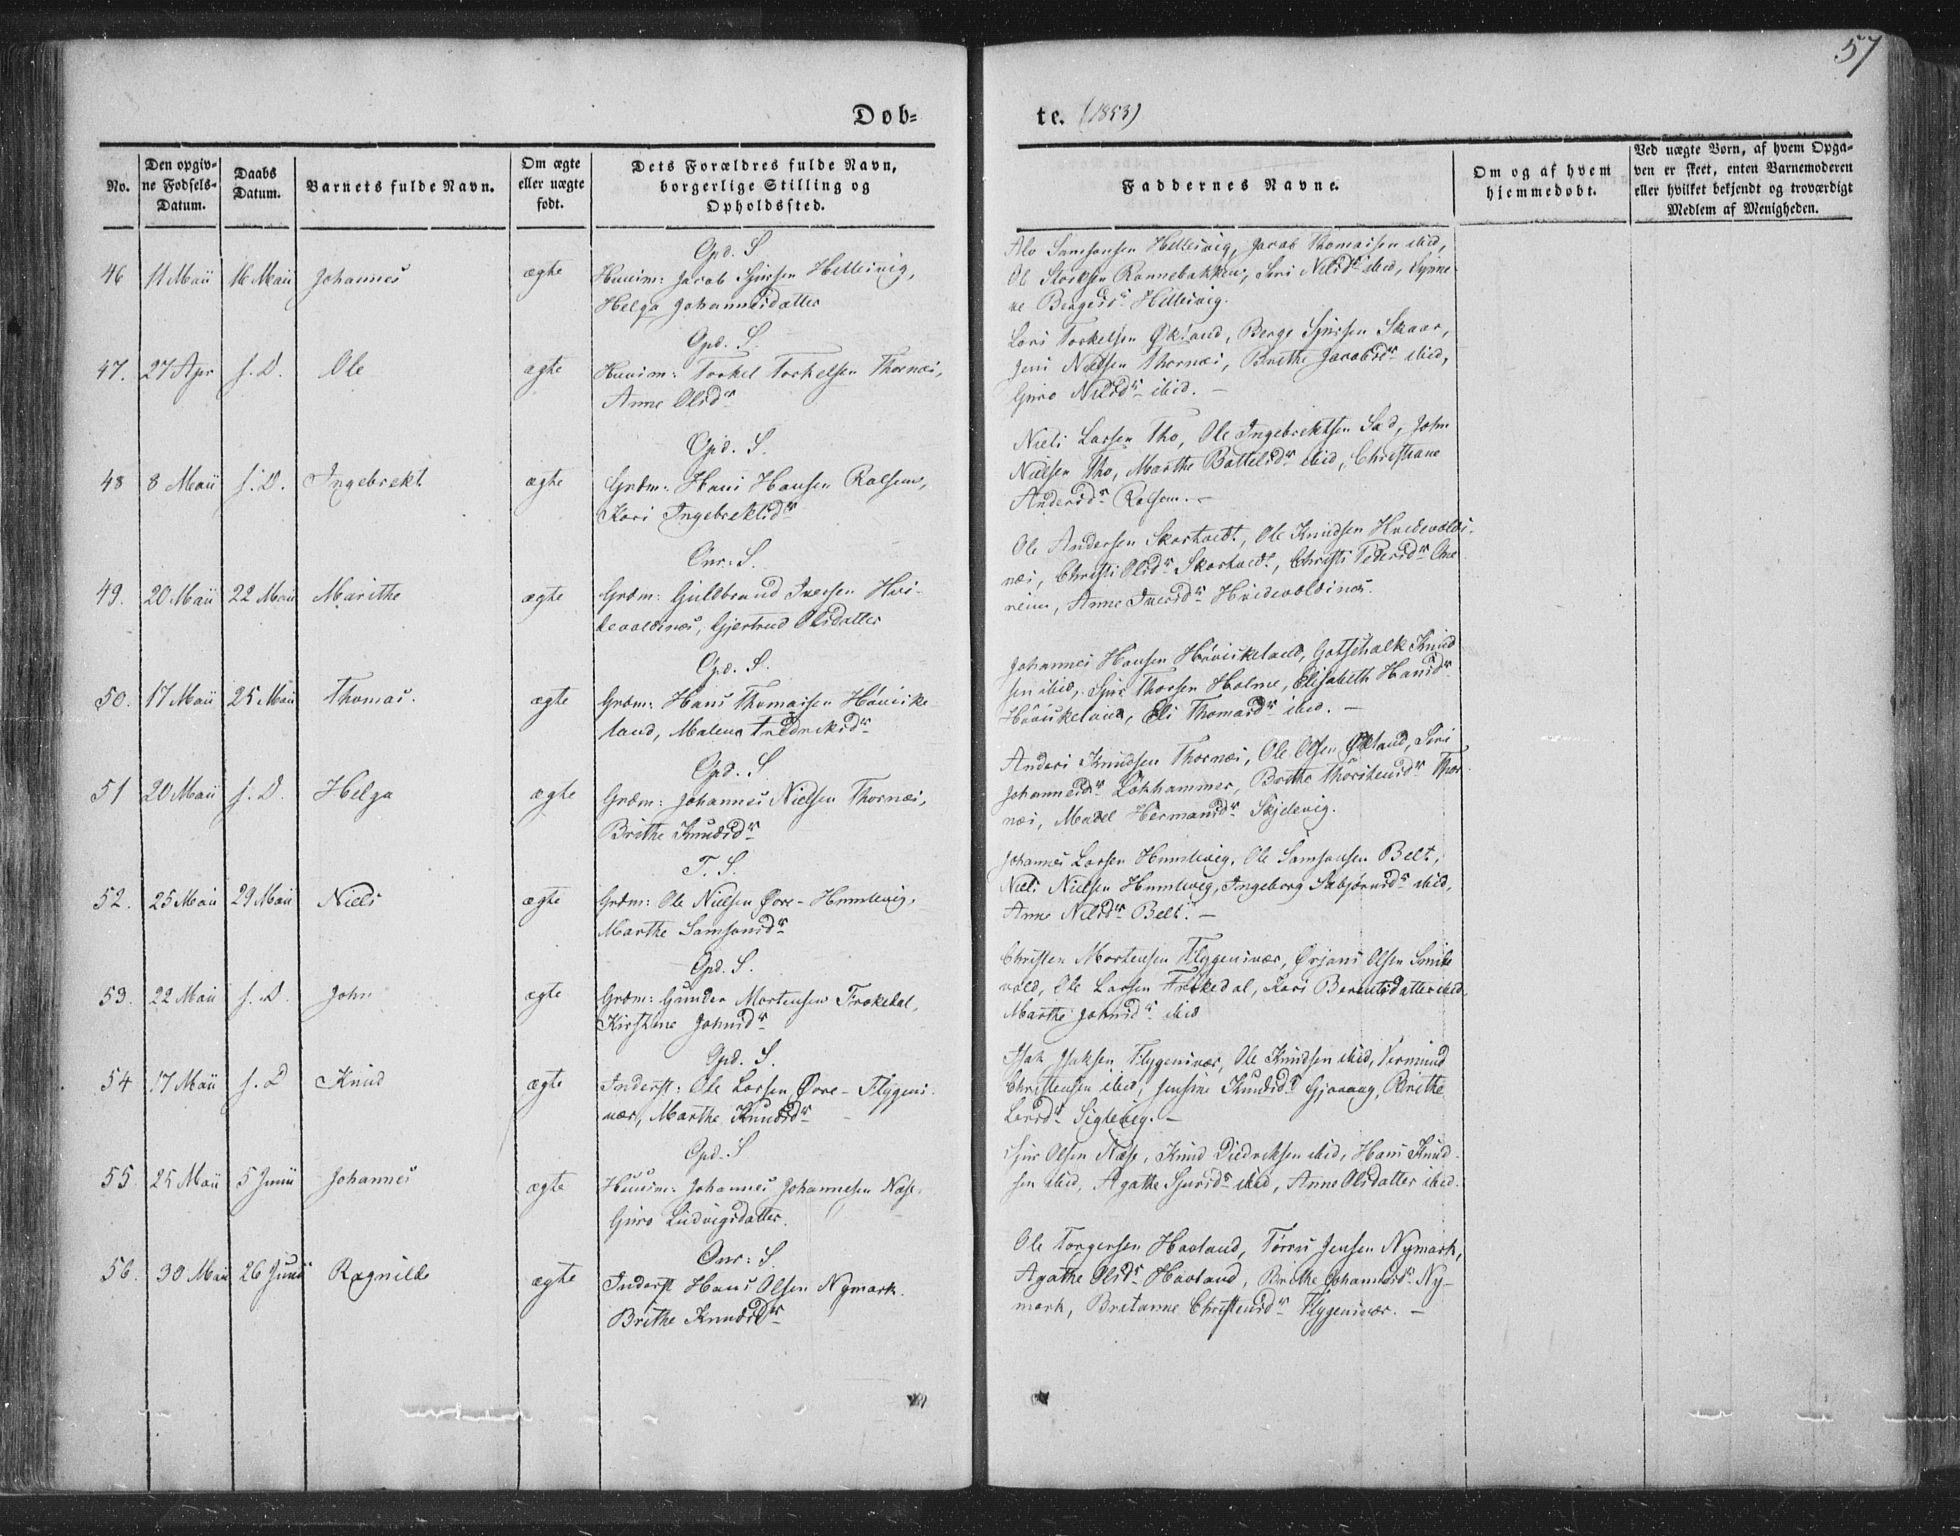 57
Døb=
te. (1853)
No.
Den opgiv=
ne Fødsels=
Datum.
Daabs
Datum.
Barnets fulde Navn.
Om ægte
eller uægte
født.
Dets Forældres fulde Navn,
borgerlige Stilling og
Opholdssted.
Faddernes Navne.
Om og af hvem
hjemmedøbt.
Ved uægte Børn, af hvem Opga=
ven er skeet, enten Barnemoderen
eller hvilket bekjendt og troværdigt
Medlem af Menigheden.
Opd. S.
46 11 Maii 16 Maii Johannes ægte Huusm: Jacob Sjursen Hellisvig,
Helga Johannesdatter
Alv Samsonsen Hellisvig, Jacob Thomassen ibid,
Ol Storksen Rønnebakken, Siri Nilsdr ibid, Synne-
ve Bergesdr Hellisvig.
Opd. S.
47. 27 Apr s. D. Ole ægte Huusm: Torkel Torkelsen Thornæs,
Anne Olsdr
Lars Torkelsen Økland, Berge Sjursen Skaar,
Jens Nielsen Thornæs, Brithe Jacobsdr ibid,
Guro Nilsdr ibid. —
Opd. S.
48 8 Maii s. D. Ingebrekt ægte Grdm: Hans Hansen Rolsem,
Kari Ingebrektsdr
Niels Larsen Tho, Ole Ingebrektsen Sæd, John
Nielsen Tho, Marthe Bottelsdr ibid, Christiane
Andersdr Rolsem. —
Onr: S.
49. 20 Maii 22 Maii Marithe ægte Grdm: Guldbrand Iversen Hvi-
devoldnæs, Gjertrud Olsdatter
Ole Andersen Skortvedt, Ole Knudsen Hvidevolds-
næs, Christi Olsdr Skortvedt, Christi Pedersdr One
reim, Anne Iversdr Hvidevoldsnæs.
Opd. S.
50. 17 Maii 25 Maii Thomas. ægte Grdm: Hans Thomassen Høviske-
land, Malena Fredriksdr
Johannes Hansen Høviskeland, Gotschalk Knud
sen ibid, Sjur Thorsen Holme, Elisabeth Hansdr
Høviskeland, Eli Thomasdr ibid. —
Opd. S.
51 20 Maii s. D. Helga ægte Grdm: Johannes Nielsen Thornæs,
Brithe Knudsdr
Anders Knudsen Thornæs, Ole Olsen Økland, Siri
Johannesdr Lokhammer, Brithe Thorstensdr Thor-
næs, Mendel Hermansdr Skjelevig.
T. S.
52. 25 Maii 29 Maii Niels ægte Grdm: Ole Nielsen Øvre-Humlevig,
Marthe Samsonsdr
Johannes Larsen Humlevig, Ole Samsonsen Belt,
Niels Nielsen Humlevig, Ingeborg Asbjørnsdr ibid,
Anne Nilsdr Belt. —
Opd. S.
53. 22 Maii s. D. John ægte Grdm: Gunder Mortensen Frøkedal,
Kirstine Johnsdr
Christen Mortensen Flygensvær, Ørjans Olsen Smite
vold, Ole Larsen Frøkedal, Kari Berentsdatter ibid
Marthe Johnsdr ibid
Opd. S.
54 17 Maii s. D Knud ægte Inderst: Ole Larsen Øvre-Flygens-
vær, Marthe Knudsdr —
Isak Isaksen Flygensvær, Ole Knudsen ibid, Vermund
Christensen ibid, Jensine Knudsdr Gjøvaag, Brithe
Larsdr Siglevig. —
Opd. S
55 25 Maii 5 Junii Johannes ægte Huusm: Johannes Johannesen Næss,
Guro Ludvigsdatter.
Sjur Olsen Næss, Knud Diedriksen ibid, Hans Knud-
sen ibid, Agathe Sjursdr ibid, Anne Olsdatter ibid.
Onr: S.
56. 30 Maii 26 Junii Ragnilde ægte Inderst Hans Olsen Nymark.
Brithe Knudsdr
Ole Torgersen Hovland, Tørris Jensen Nymark,
Agathe Olsdr Hovland, Brithe Johannesdr Ny-
mark, Britanne Christensdr Flygensvær. —